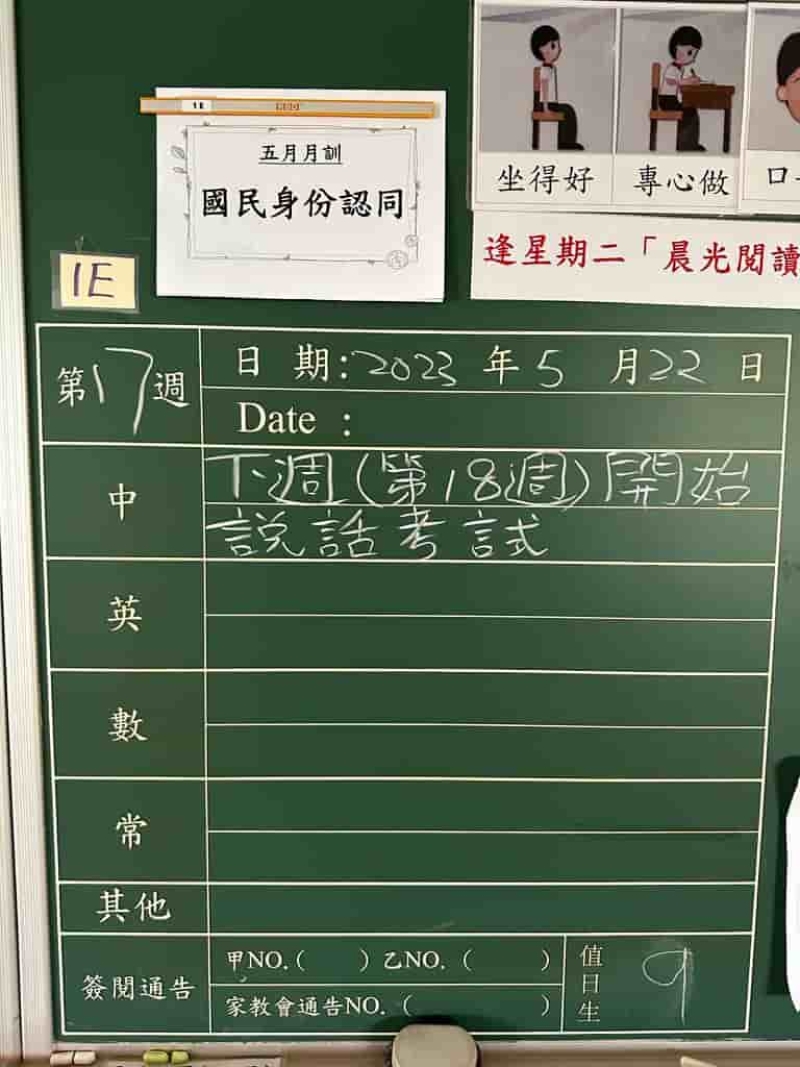 1E
五月月訓
國民身份認同
坐得好
專心做
口
逢星期二「晨光閱讀
1E
第17週
日 期:2023 年 5 月 22 日
Date :
中
下週(第18週)開始
說話考試
英
數
常
其他
簽閱通告
甲NO.( ) 乙NO. ( )
家教會通告NO. ( )
值日生
9